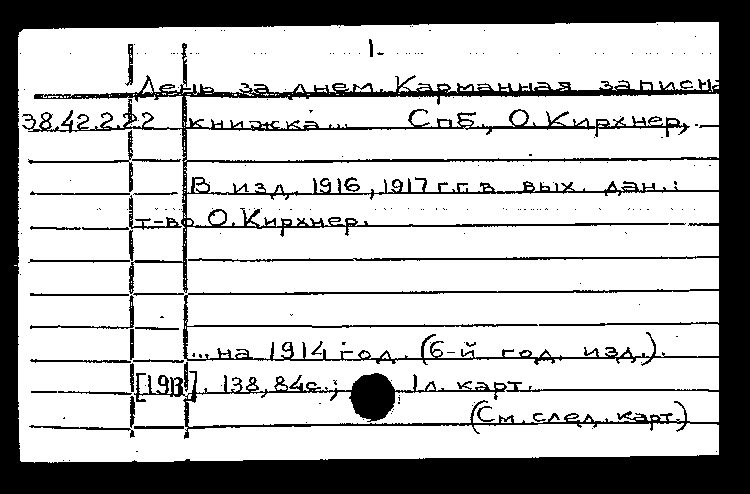 1.
День за днем. Карманная записна
38.42.2.22 книжка... СпБ., О. Кирхнер,
В изд. 1916, 1917 г.г. в вых. дан.:
т-во О. Кирхнер.
...на 1914 год. (6-й год. изд.).
[1913]. 138, 84с.; 1л. карт.
(См. след. карт.)